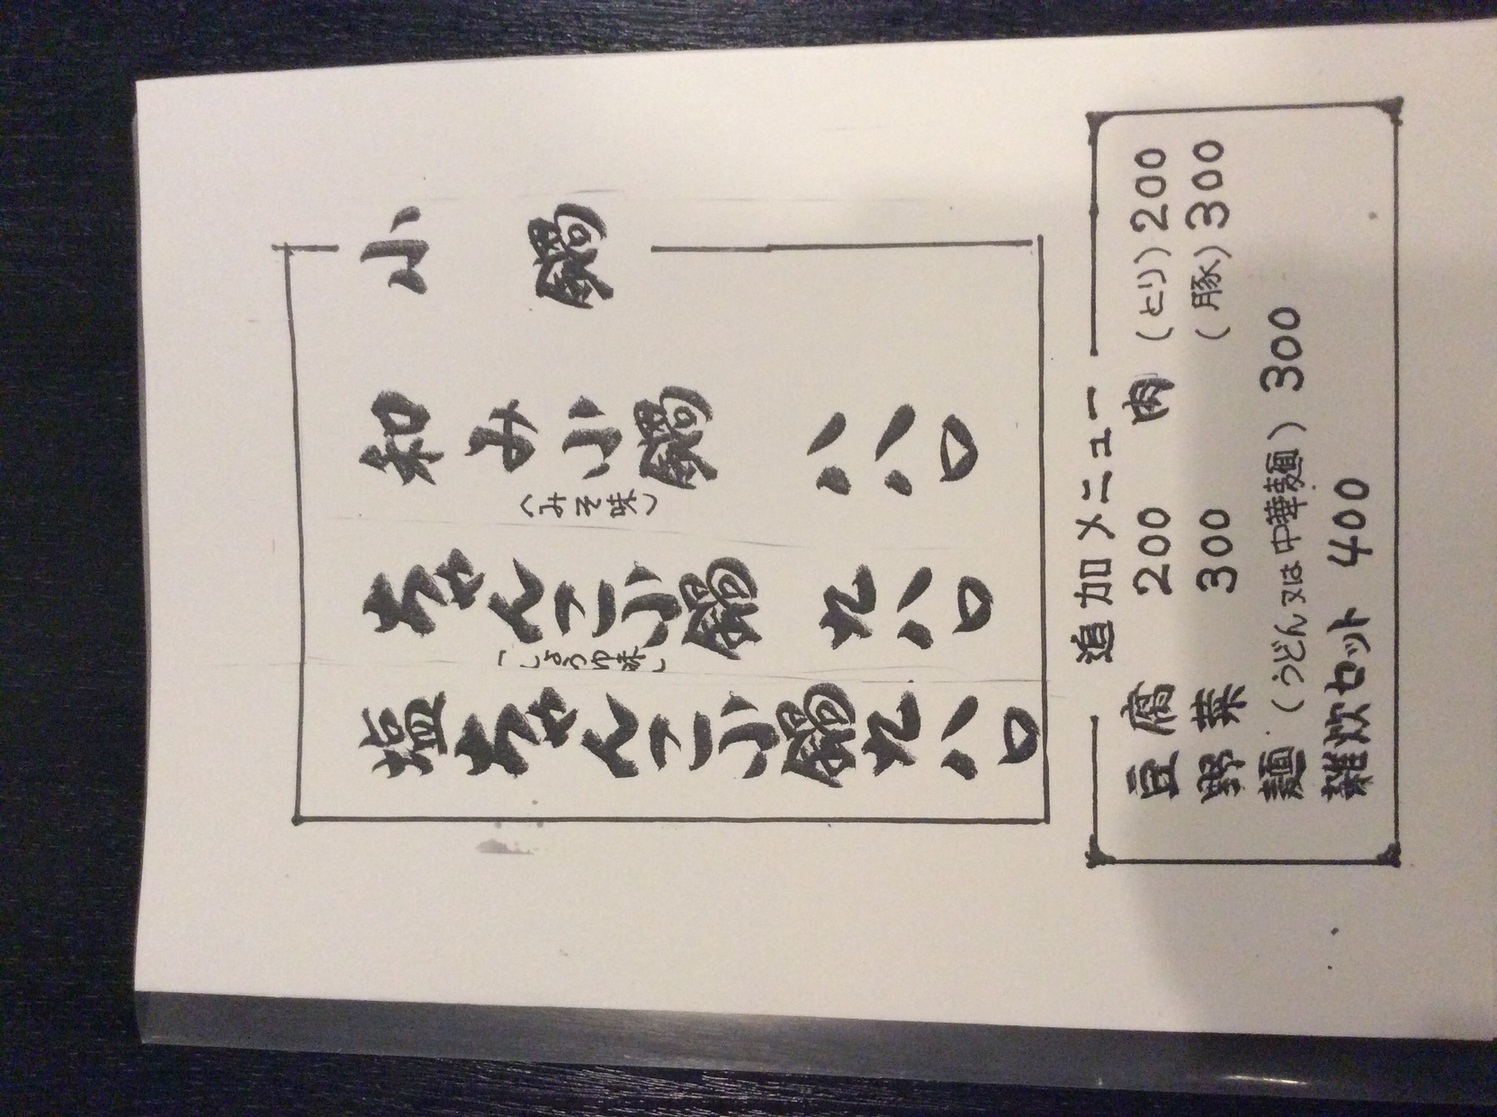 小鍋
和み小鍋 八八〇
(みそ味)
ちゃんこ小鍋 九八〇
(しょうゆ味)
塩ちゃんこ小鍋 九八〇
追加メニュー
豆腐 200 肉 (とり) 200
野菜 300 (豚) 300
麺 (うどん又は中華麺) 300
雑炊セット 400